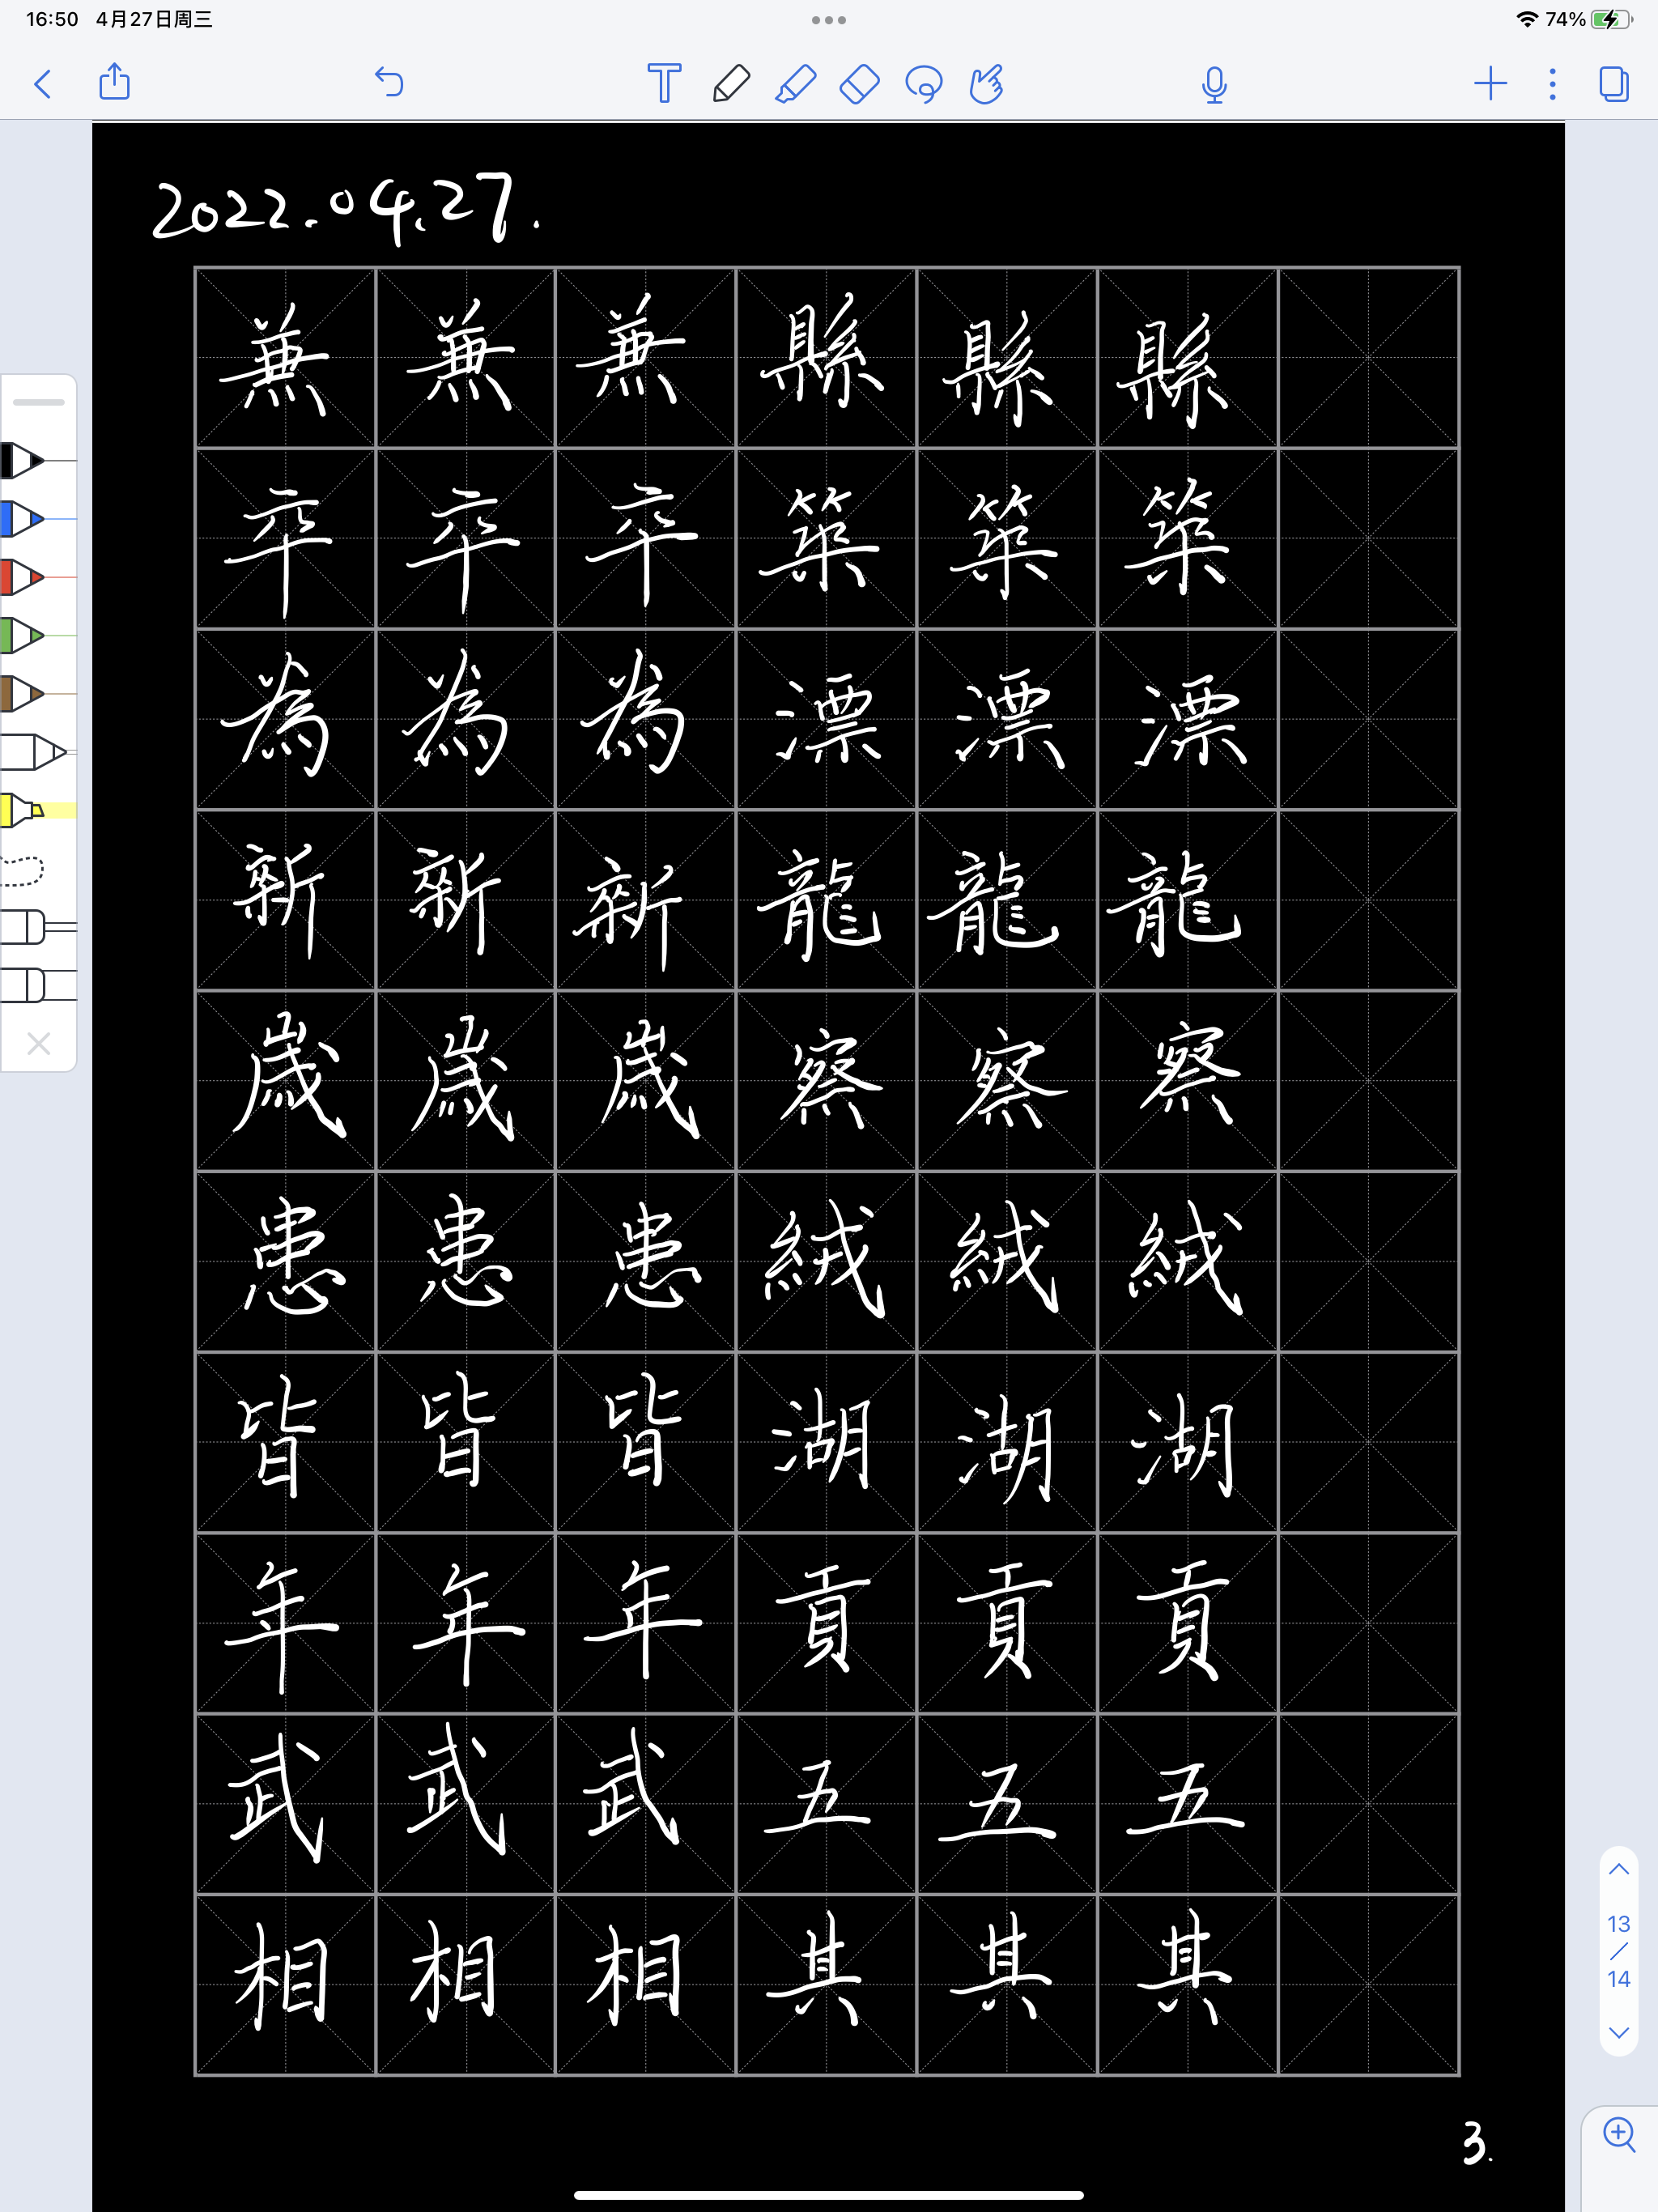 16:50 4月27日周三 74%
2022.04.27.
兼 兼 兼 縣 縣 縣
卒 卒 卒 築 築 築
為 為 為 漂 漂 漂
新 新 新 龍 龍 龍
歲 歲 歲 察 察 察
患 患 患 絨 絨 絨
皆 皆 皆 湖 湖 湖
年 年 年 貢 貢 貢
武 武 武 五 五 五
相 相 相 其 其 其
13
/
14
3.